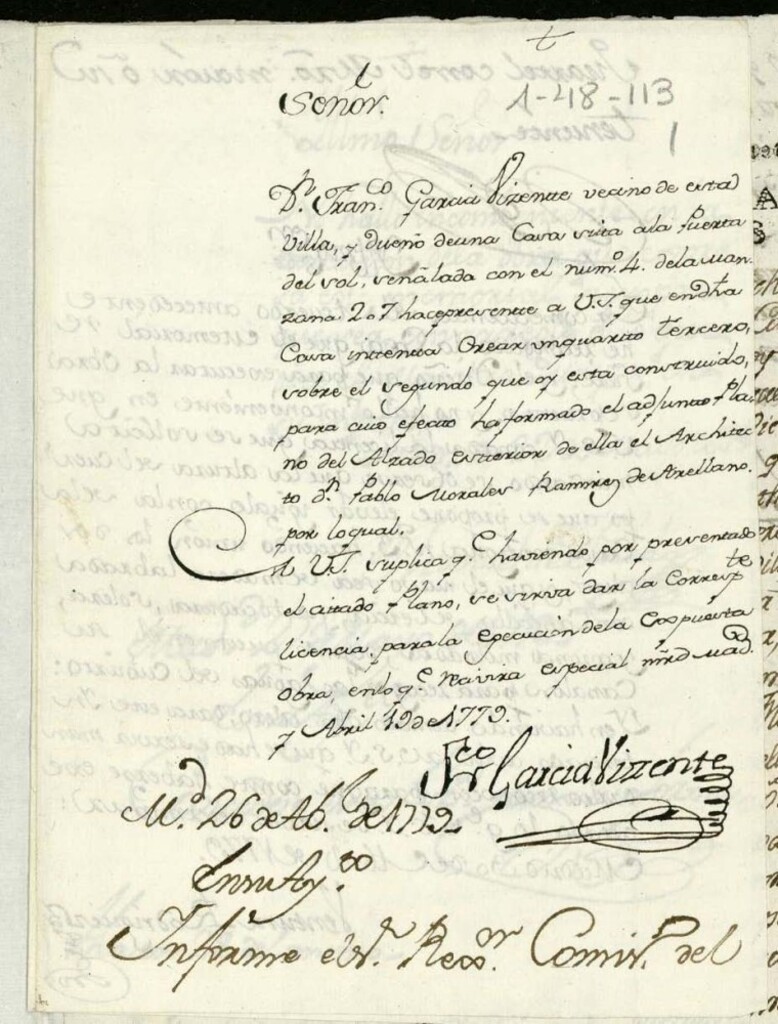 +
Señor.
1-48-113
1
Dn. Franco. Garcia Vizente vecino de esta
Villa, y dueño de una Casa sita a la Puerta
del sol, señalada con el numo. 4. de la Man-
zana 207 hace presente a V.I. que en dha
Casa intenta Crear un quarto tercero,
sobre el segundo que oy esta construido,
para cuio efecto ha formado el adjunto Pla-
no del Alzado esterior de ella el Architec-
to dn. Pablo Morales Ramirez de Arellano.
por lo qual.
A V.I. suplica qe. haviendo por presentado
el citado Plano, se sirva dar la Correspte
licencia, para la egecucion de la Expuesta
obra, en lo qe. recivira especial mrd Mad
y Abril 19 de 1779.
Fco Garcia Vizente
Md. 26 de Ab.l de 1779
En su Ayto.
Informe el Sr. Reor. Comiso. del